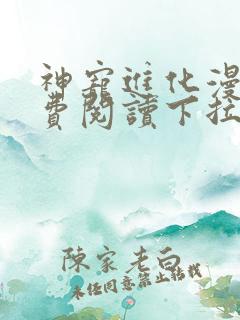 神寵進化漫
費閱讀下拉
陳家老白
未經同意禁止轉載